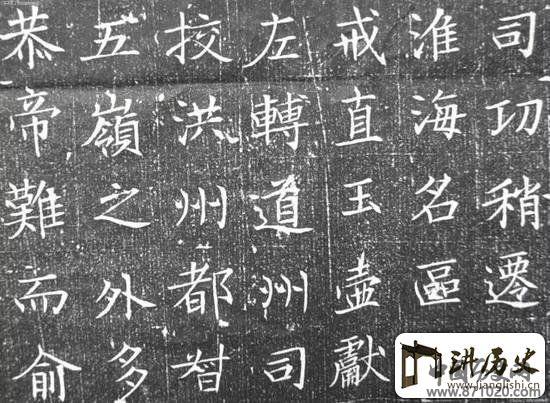 司功稍遷
淮海名區
戒直玉壺獻
左轉道州司
挍洪州都督
五嶺之外多
恭帝難而俞
讲历史
www.jianglishi.cn
www.871020.com